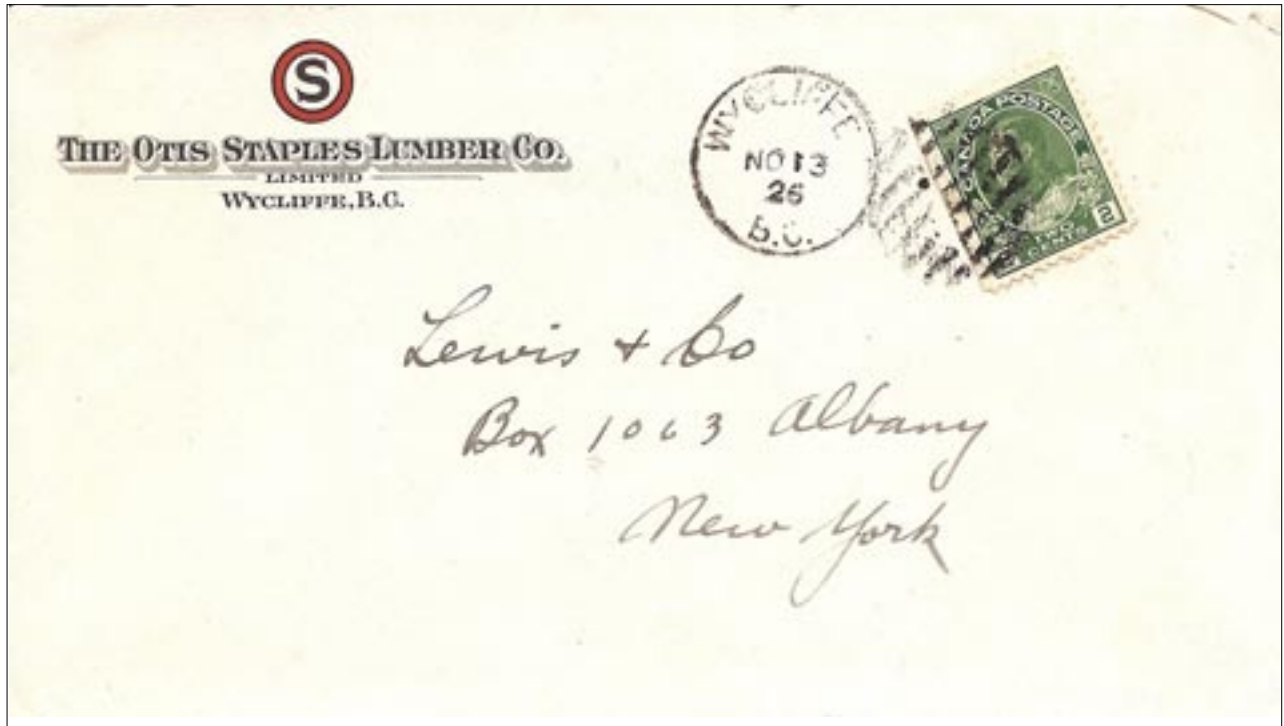 S
THE OTIS STAPLES LUMBER CO.
LIMITED
WYCLIFFE, B.C.
WYCLIFFE
NO 13
26
B.C.
CANADA POSTAGE
2
TWO CENTS
Lewis + Co
Box 1063 Albany
New York